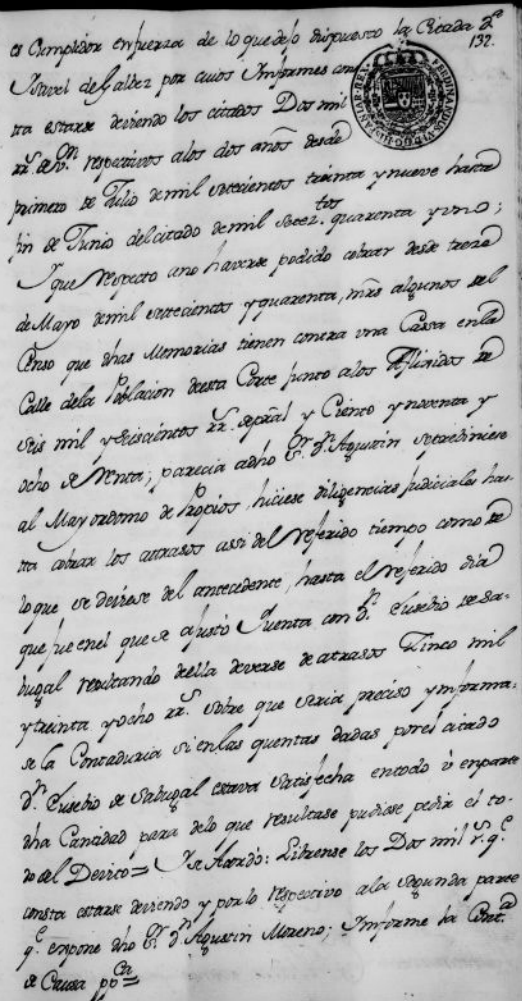 es Cumplidor en fuerza de lo que dejo dispuesto la Citada D.ª
132.
Isavel de Galdez por cuios Informes cons
ta estarse deviendo los citados Dos mil
rr.s de v.n respectivos a los dos años desde
primero de Julio de mil setecientos treinta y nueve hasta
fin de Junio del citado de mil setez.tos quarenta y uno;
Y que respecto a no haverse podido cobrar desde treze
de Mayo de mil setecientos y quarenta, mrs algunos del
Censo que dhas Memorias tienen contra una Cassa en la
Calle de la Poblacion desta Corte junto a los Afligidos de
seis mil y seiscientos rr.s de pral y Ciento y noventa y
ocho de Renta; parecia a dho S.r d.n Agustin se prebiniese
al Mayordomo de Propios, hiciese diligencias judiciales has-
ta cobrar los atrasos assi del referido tiempo como de
lo que se deviese del antecedente, hasta el referido dia
que fue en el que se ajustó Quenta con d.n Eusebio de Sa-
bugal resultando della deverse de atrasos Cinco mil
y treinta y ocho rr.s sobre que seria preciso ynforma-
se la Contaduria si en las quentas dadas por el citado
d.n Eusebio de Sabugal estava satisfecha en todo ù en parte
dha Cantidad para de lo que resultase pudiese pedir el to-
do del Devito = Y se Acordó: Librense los Dos mil r.s q.e
consta estarse deviendo y por lo respectivo a la segunda parte
q.e expone dho S.r d.n Agustin Moreno; Informe la Cont.a
de Caussa pp.ca =
FERDINANDUS VI D.G. HISPANIAR. REX